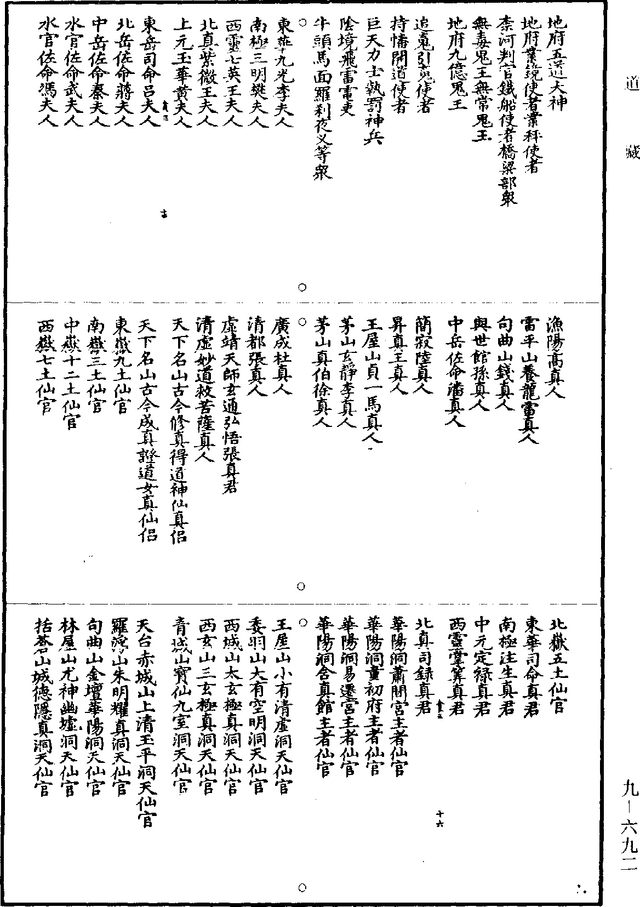 道藏
地府五道大神
地府業鏡使者業秤使者
柰河判官鐵船使者橋梁部衆
無毒鬼王無常鬼王
地府九億鬼王
追魂引魂使者
持幡開道使者
巨天力士執罰神兵
陰境飛雷電吏
牛頭馬面羅剎夜叉等衆
東華九光李夫人
南極三明樊夫人
西靈七英王夫人
北真紫微王夫人
上元玉華黄夫人
東岳司命吕夫人
北岳佐命蔣夫人
中岳佐命秦夫人
水官佐命武夫人
水官佐命馮夫人
漁陽高真人
雷平山養龍雷真人
句曲山錢真人
與世館孫真人
中岳佐命潘真人
簡寂陸真人
昇真王真人
王屋山貞一馬真人
茅山玄靜李真人
茅山真伯徐真人
廣成杜真人
清都張真人
虚靖天師玄通弘悟張真君
清虚妙道救苦薩真人
天下名山古今修真得道神仙真侣
天下名山古今成真證道女真仙侣
東嶽九土仙官
南嶽三土仙官
中嶽十二土仙官
西嶽七土仙官
北嶽五土仙官
東華司命真君
南極注生真君
中元定録真君
西靈掌筭真君
北真司録真君
十六
華陽洞蕭閒宫主者仙官
華陽洞童初府主者仙官
華陽洞易遷宫主者仙官
華陽洞含真館主者仙官
王屋山小有清虚洞天仙官
委羽山大有空明洞天仙官
西城山太玄極真洞天仙官
西玄山三玄極真洞天仙官
青城山寶仙九室洞天仙官
天台赤城山上清玉平洞天仙官
羅浮山朱明耀真洞天仙官
句曲山金壇華陽洞天仙官
林屋山尤神幽墟洞天仙官
括蒼山城德隱真洞天仙官
九－六九二